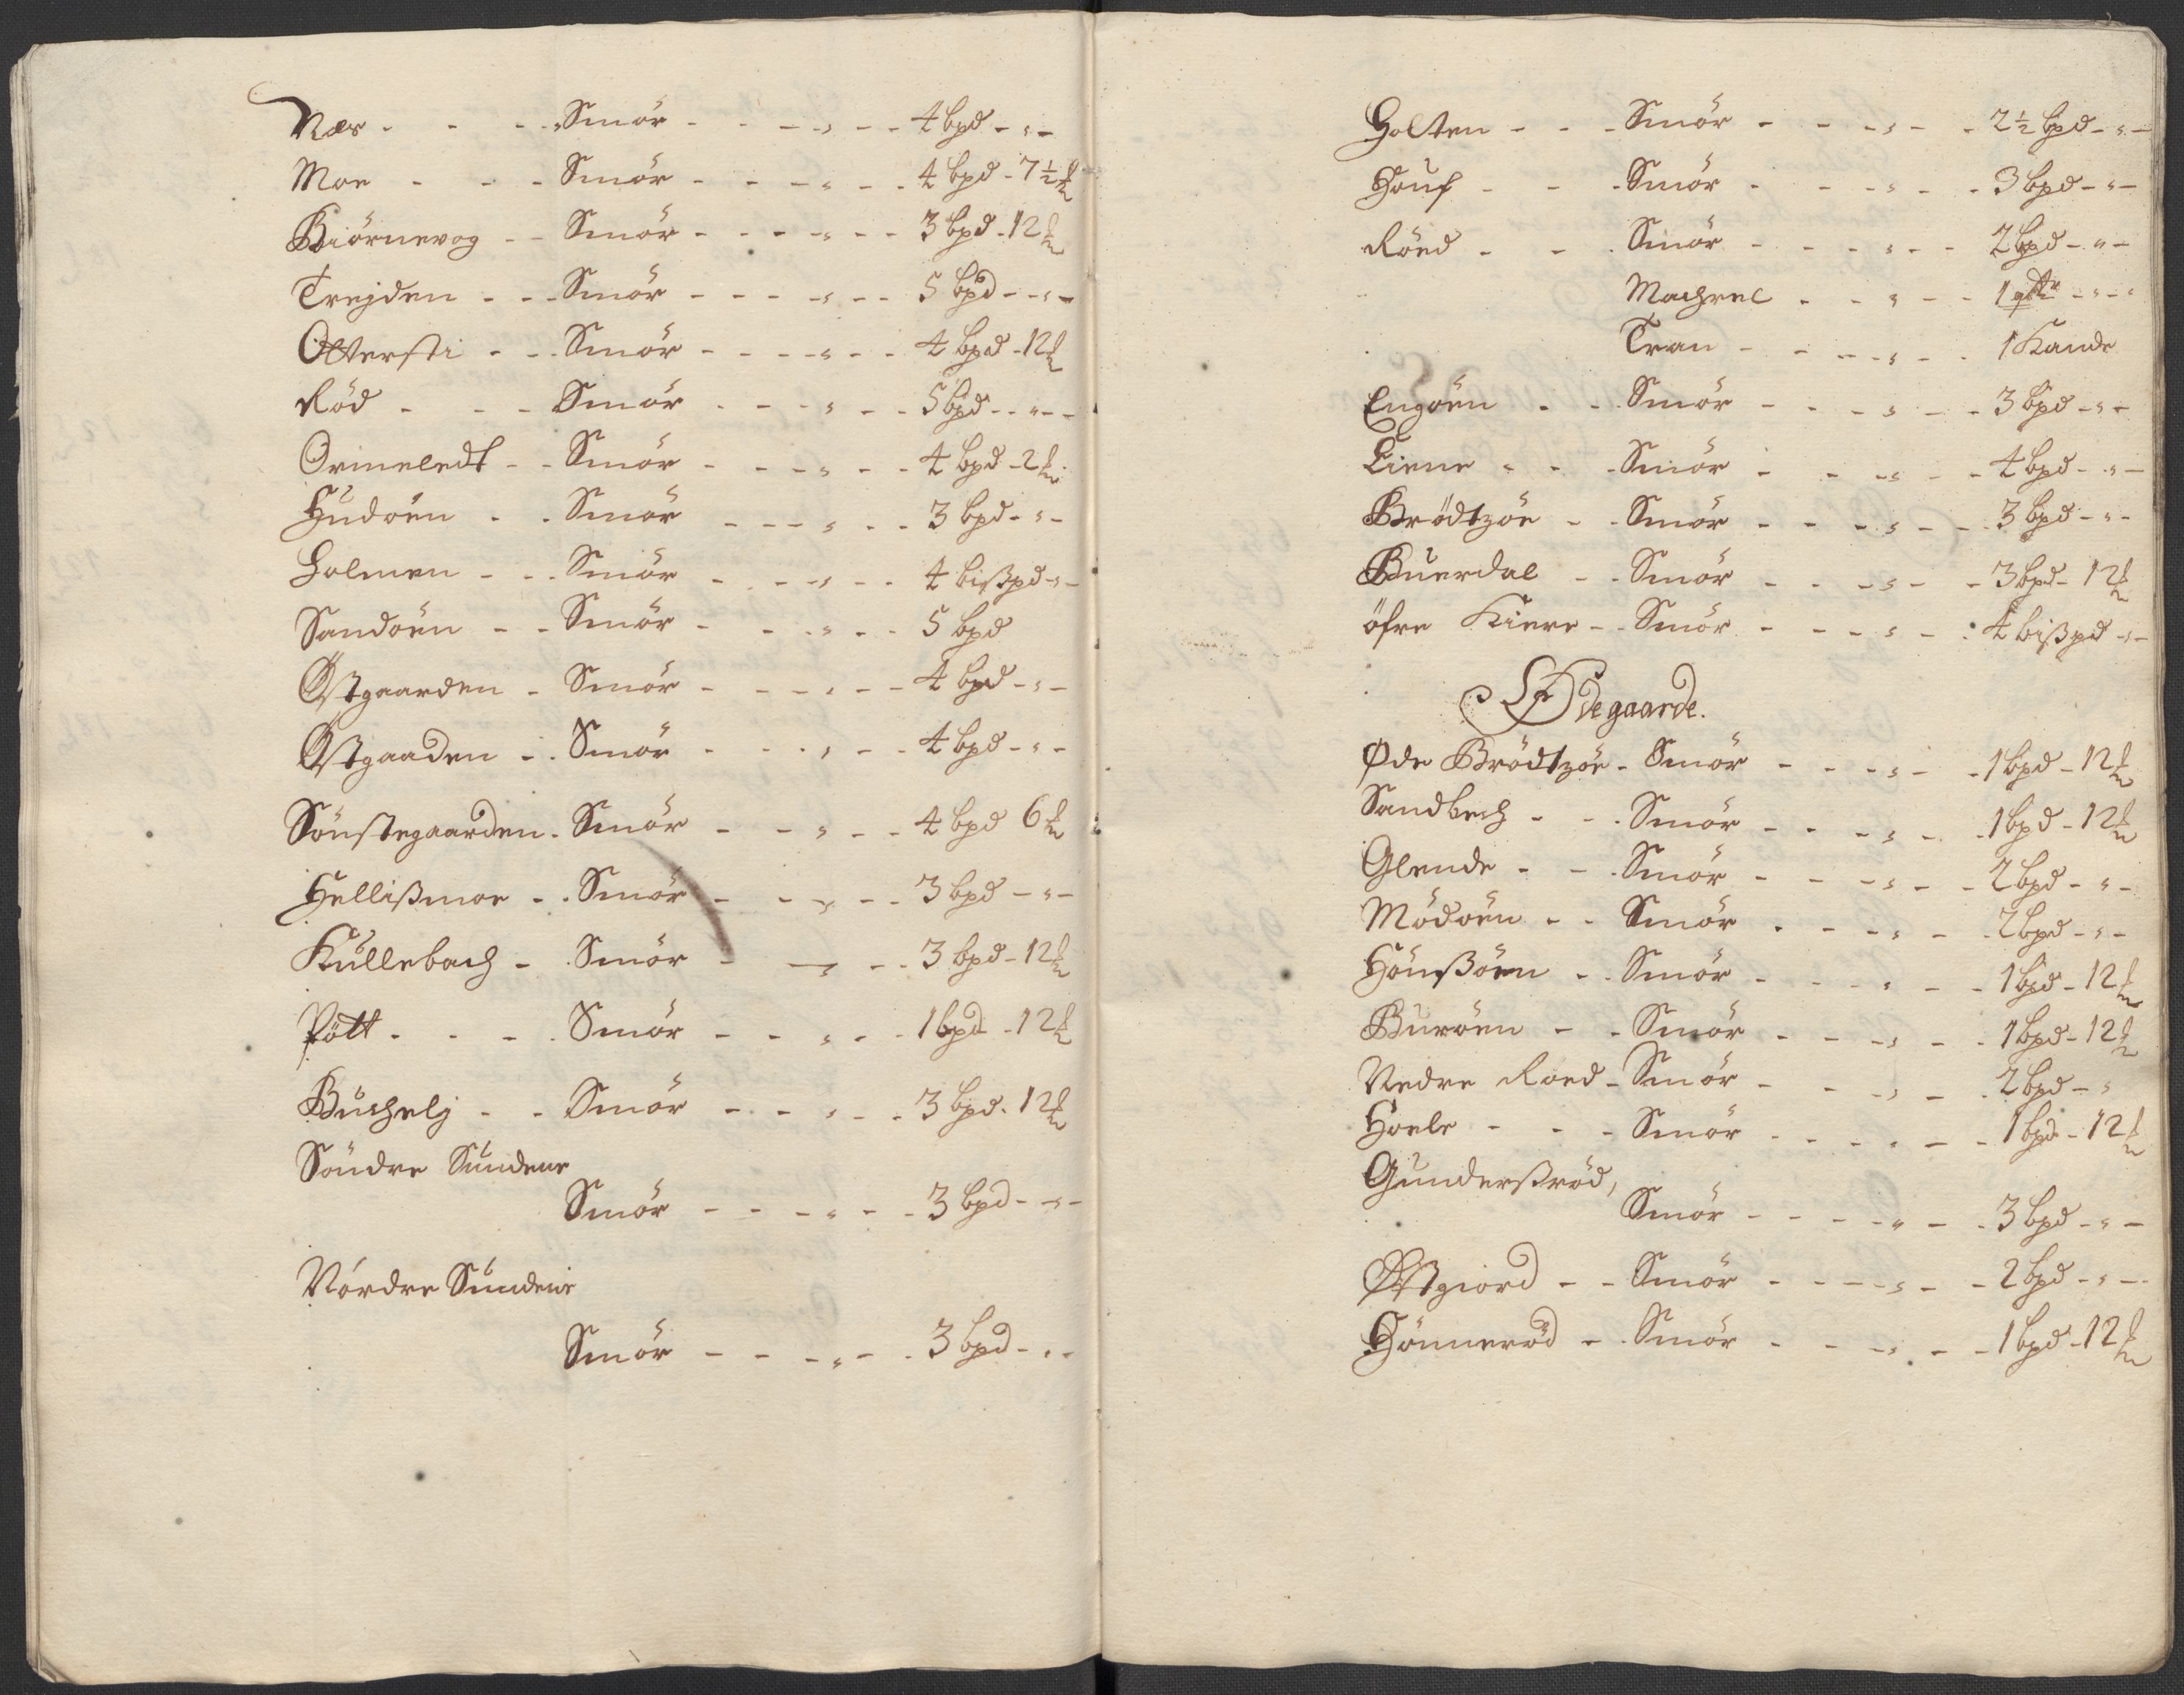 Næs - - - Smör - - - „ - - 4 bpd - „ -
Moe - - - Smör - - - „ - - 4 bpd - 7½ ℔
Biörnevog - - Smör - - - „ - - 3 bpd - 12 ℔
Trejden - - - Smör - - - „ - - 5 bpd - „ -
Ottersti - - - Smör - - - „ - - 4 bpd - 12 ℔
Röd - - - Smör - - - „ - - 5 bpd - „ -
Ormeledt - - Smör - - - „ - - 4 bpd - 2 ℔
Hudöen - - Smör - - - „ - - 3 bpd - „ -
Holmen - - - Smör - - - „ - - 4 bißpd - „ -
Sandöen - - Smör - - - „ - - 5 bpd
Östgaarden - Smör - - - „ - - 4 bpd - „ -
Östgaaden - - Smör - - - „ - - 4 bpd - „ -
Sönstegaarden - Smör - - „ - - 4 bpd 6 ℔
Hellißmoe - - Smör - - „ - - 3 bpd - „ -
Kullebach - - Smör - - „ - - 3 bpd - 12 ℔
Pött - - - Smör - - „ - - 1 bpd - 12 ℔
Buchelj - - Smör - - „ - - 3 bpd - 12 ℔
Söndre Sundene
Smör - - - „ - - 3 bpd - „ -
Nördre Sundene
Smör - - - „ - - 3 bpd - „ -
Holten - - - Smör - - - „ - - 2½ bpd - „ -
Houf - - - Smör - - - „ - - 3 bpd - „ -
Röed - - - Smör - - - „ - - 2 bpd - „ -
Machrel - - „ - - 1 - „ -
Tran - - - „ - - 1 Kande
Engöen - - Smör - - - „ - - 3 bpd - „ -
Liene - - - Smör - - - „ - - 4 bpd - „ -
Brödtzöe - - Smör - - - „ - - 3 bpd - „ -
Buerdal - - Smör - - - „ - - 3 bpd - 12 ℔
öfre Kiere - - Smör - - - „ - - 4 bißpd - „ -
Ödegaarde.
Øde Brödtzöe - Smör - - - „ - - 1 bpd - 12 ℔
Sandbech - - - Smör - - - „ - - 1 bpd - 12 ℔
Glende - - - Smör - - - „ - - 2 bpd - „ -
Mödöen - - Smör - - - „ - - 2 bpd - „ -
Hönßöen - - Smör - - - „ - - 1 bpd - 12 ℔
Buröen - - Smör - - - „ - - 1 bpd - 12 ℔
Nedre Roed - Smör - - - „ - - 2 bpd - „
Hoele - - - Smör - - - „ - - 1 bpd - 12 ℔
Gunderßröd,
Smör - - - „ - - 3 bpd - „ -
Østgiord - - Smör - - - „ - - 2 bpd - „ -
Hönneröd - - Smör - - - „ - - 1 bpd - 12 ℔